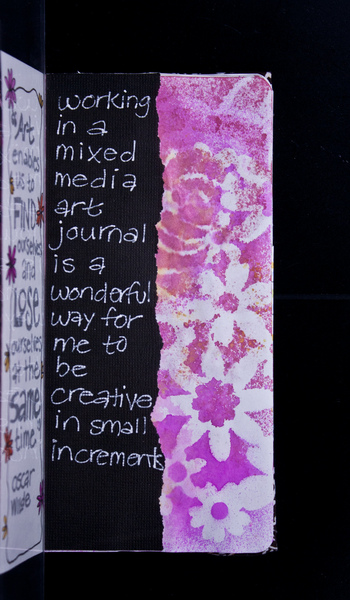 "Art
enables
us to
FIND
ourselves
and
LOSE
ourselves
at the
same
time"
oscar
wilde
working
in a
mixed
media
art
journal
is a
wonderful
way for
me to
be
creative
in small
increments